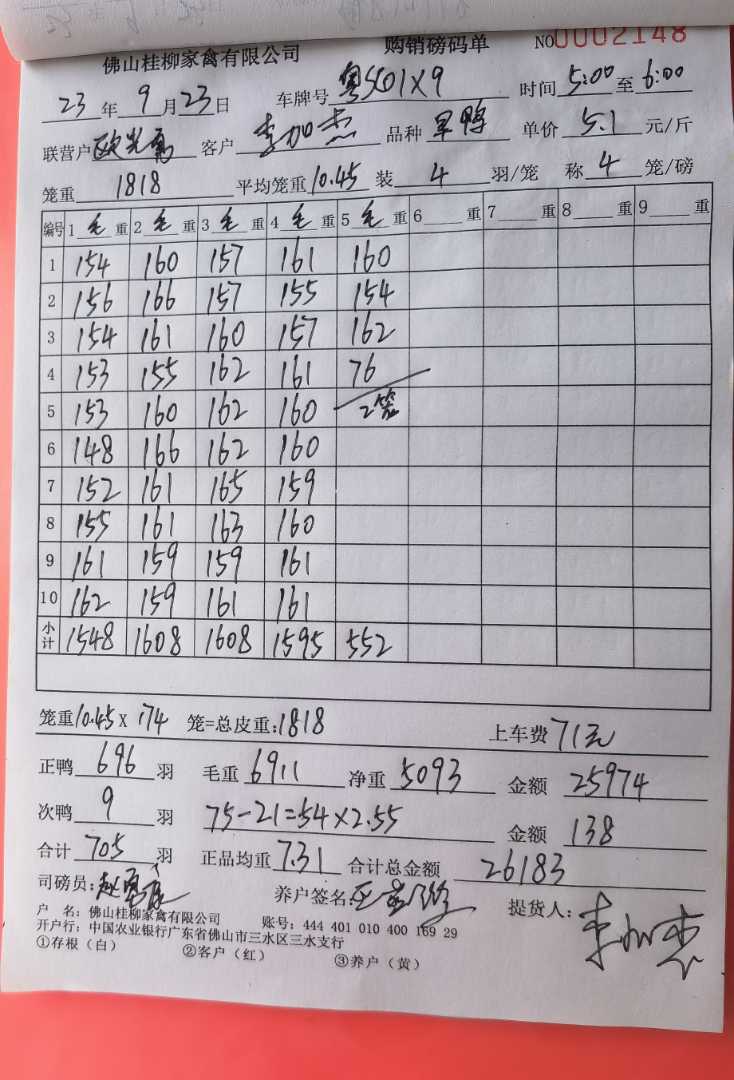 佛山桂柳家禽有限公司 购销磅码单 NO0002148
23年9月23日 车牌号粤S601X9 时间5:00至6:00
联营户 客户李加杰 品种旱鸭 单价5.1元/斤
笼重1818 平均笼重10.45 装4羽/笼 称4笼/磅
编号 1毛重 2毛重 3毛重 4毛重 5毛重 6重 7重 8重 9重
1 154 160 157 161 160
2 156 166 157 155 154
3 154 161 160 157 162
4 153 155 162 161 76
5 153 160 162 160 2笼
6 148 166 162 160
7 152 161 165 159
8 155 161 163 160
9 161 159 159 161
10 162 159 161 161
小计 1548 1608 1608 1595 552
笼重10.45X174笼=总皮重:1818 上车费71元
正鸭696羽 毛重6911 净重5093 金额25974
次鸭9羽 75-21=54×2.55 金额138
合计705羽 正品均重7.31 合计总金额26183
司磅员: 养户签名: 提货人:李加杰
户 名:佛山桂柳家禽有限公司 账号:444 401 010 400 169 29
开户行:中国农业银行广东省佛山市三水区三水支行
①存根(白) ②客户(红) ③养户(黄)